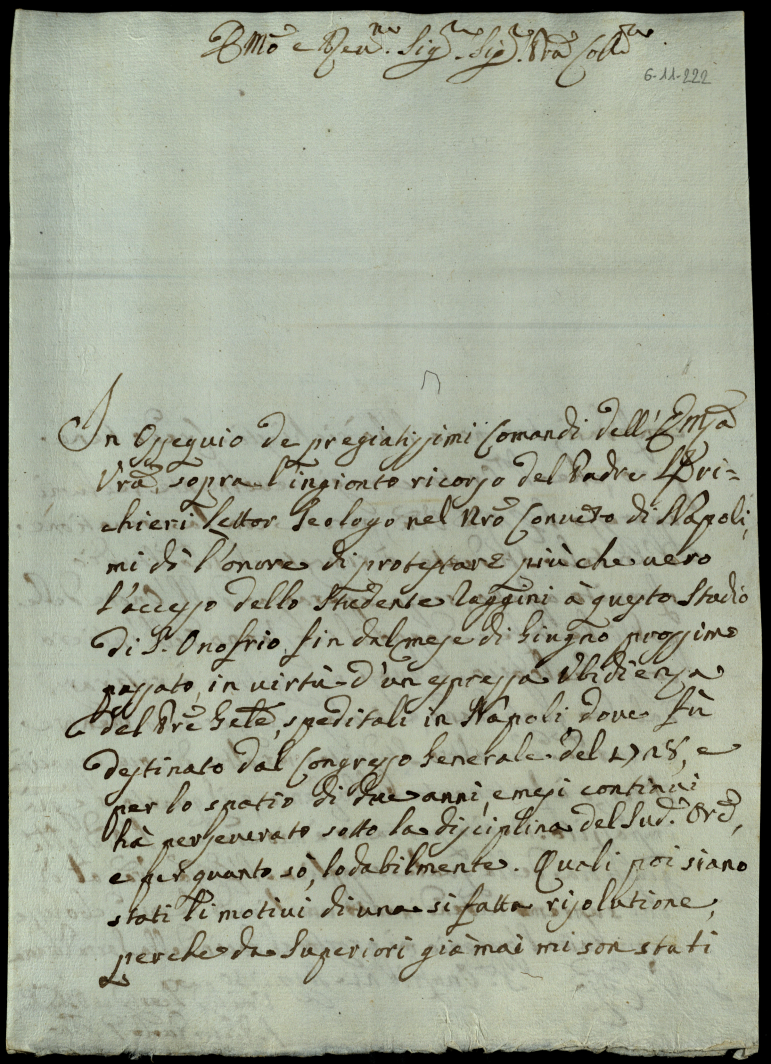 Emo e Rev.mo Sig.r Sig.r Pr̃n Coll.mo
6-11-222
In Ossequio de pregiatissimi Comandi dell' Emza
Vrã, sopra l'ingionto ricorso del Padre
chieri Lettor Teologo nel Nrõ Convẽto di Napoli,
mi dò l'onore di protestare più che vero
l'accesso dello Studente Raggini à questo Studio
di S. Onofrio sin dal mese di Giugno prossimo
passato, in virtù d'un espressa Ubidienza
del Prẽ Gelẽ, speditali in Napoli dove fù
destinato dal Congresso Generale del 1728, e
per lo spatio di due anni, e mesi continui
hà perseverato sotto la disciplina del Sud.o Prẽ,
e per quanto sò, lodabilmente. Quali poi siano
stati li motivi di una si fatta risolutione,
perche da Superiori già mai mi son stati